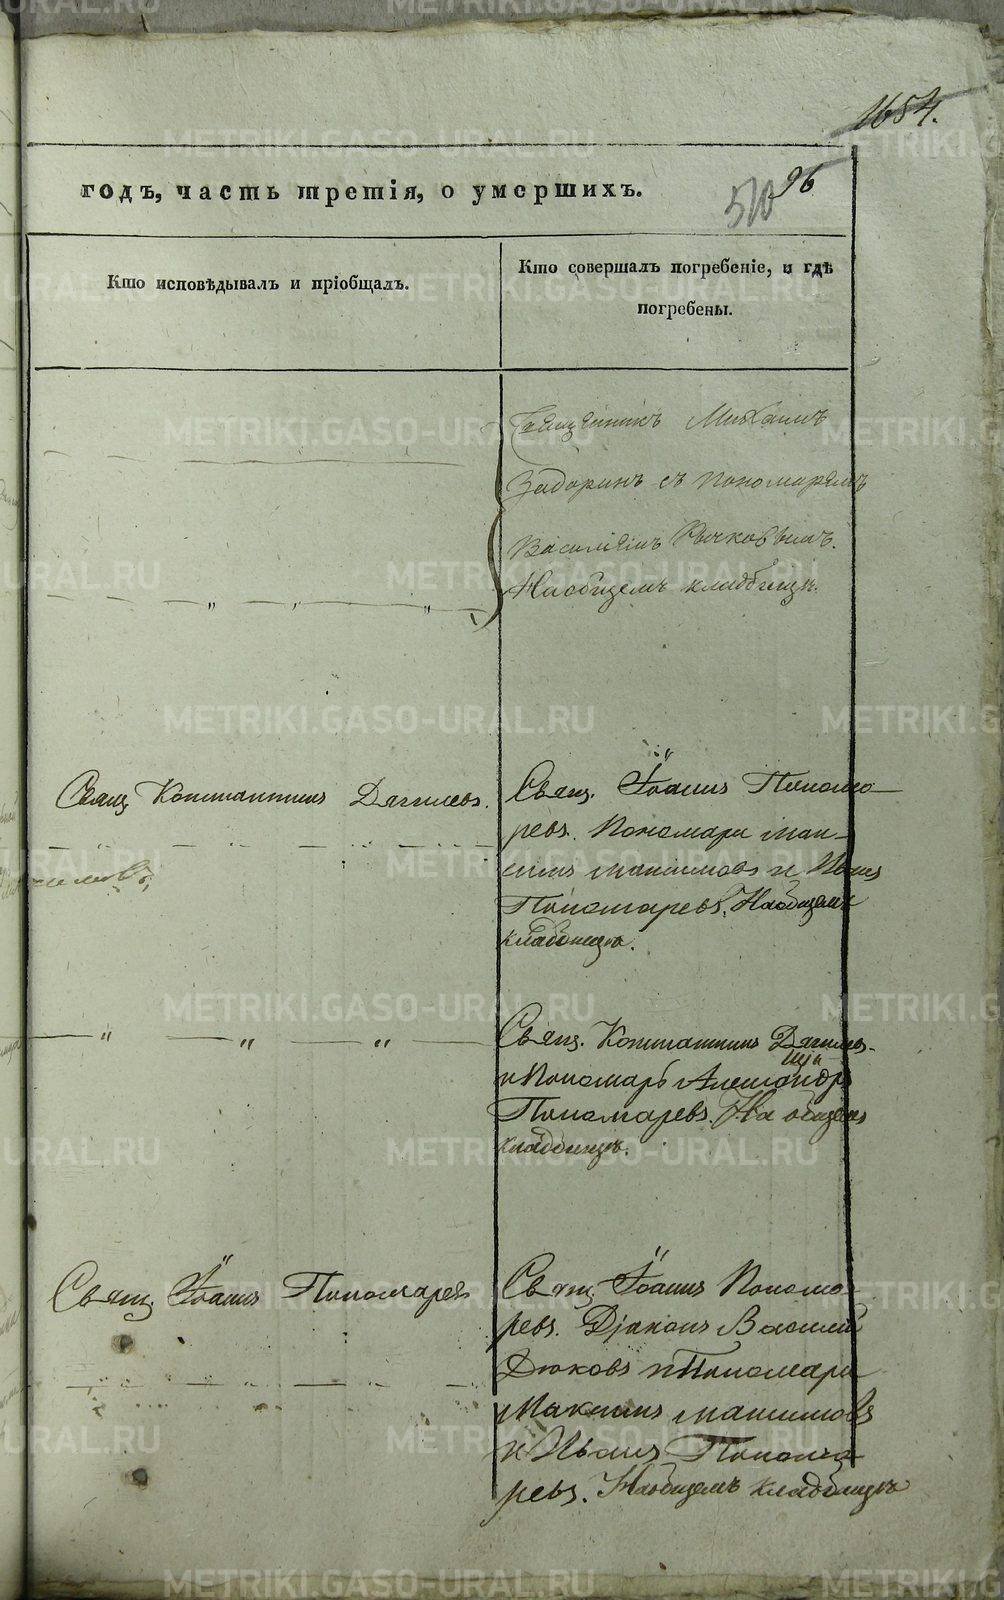 1654.
96
510
годъ, часть третія, о умершихъ.
Кто исповѣдывалъ и пріобщалъ.
Кто совершалъ погребеніе, и гдѣ
погребены.
Священникъ Михаилъ
Задоринъ съ пономаремъ
Василіемъ Рычковымъ.
На общемъ кладбищѣ.
Свящ Константинъ Дягилевъ.
Свящ. Іоаннъ Понома-
ревъ. Пономари Мак-
симъ Максимовъ и Иванъ
Пономаревъ. На общемъ
кладбищѣ.
Свящ. Константинъ Дягилевъ
и Пономарь Александръ
Пономаревъ. На общемъ
кладбищѣ.
Свящ. Іоаннъ Пономаревъ
Свящ Іоаннъ Понома-
ревъ. Діаконъ Василій
Дюковъ и Пономари
Максимъ Максимовъ
и Иванъ Понома-
ревъ. На общемъ кладбищѣ
METRIKI.GASO-URAL.RU